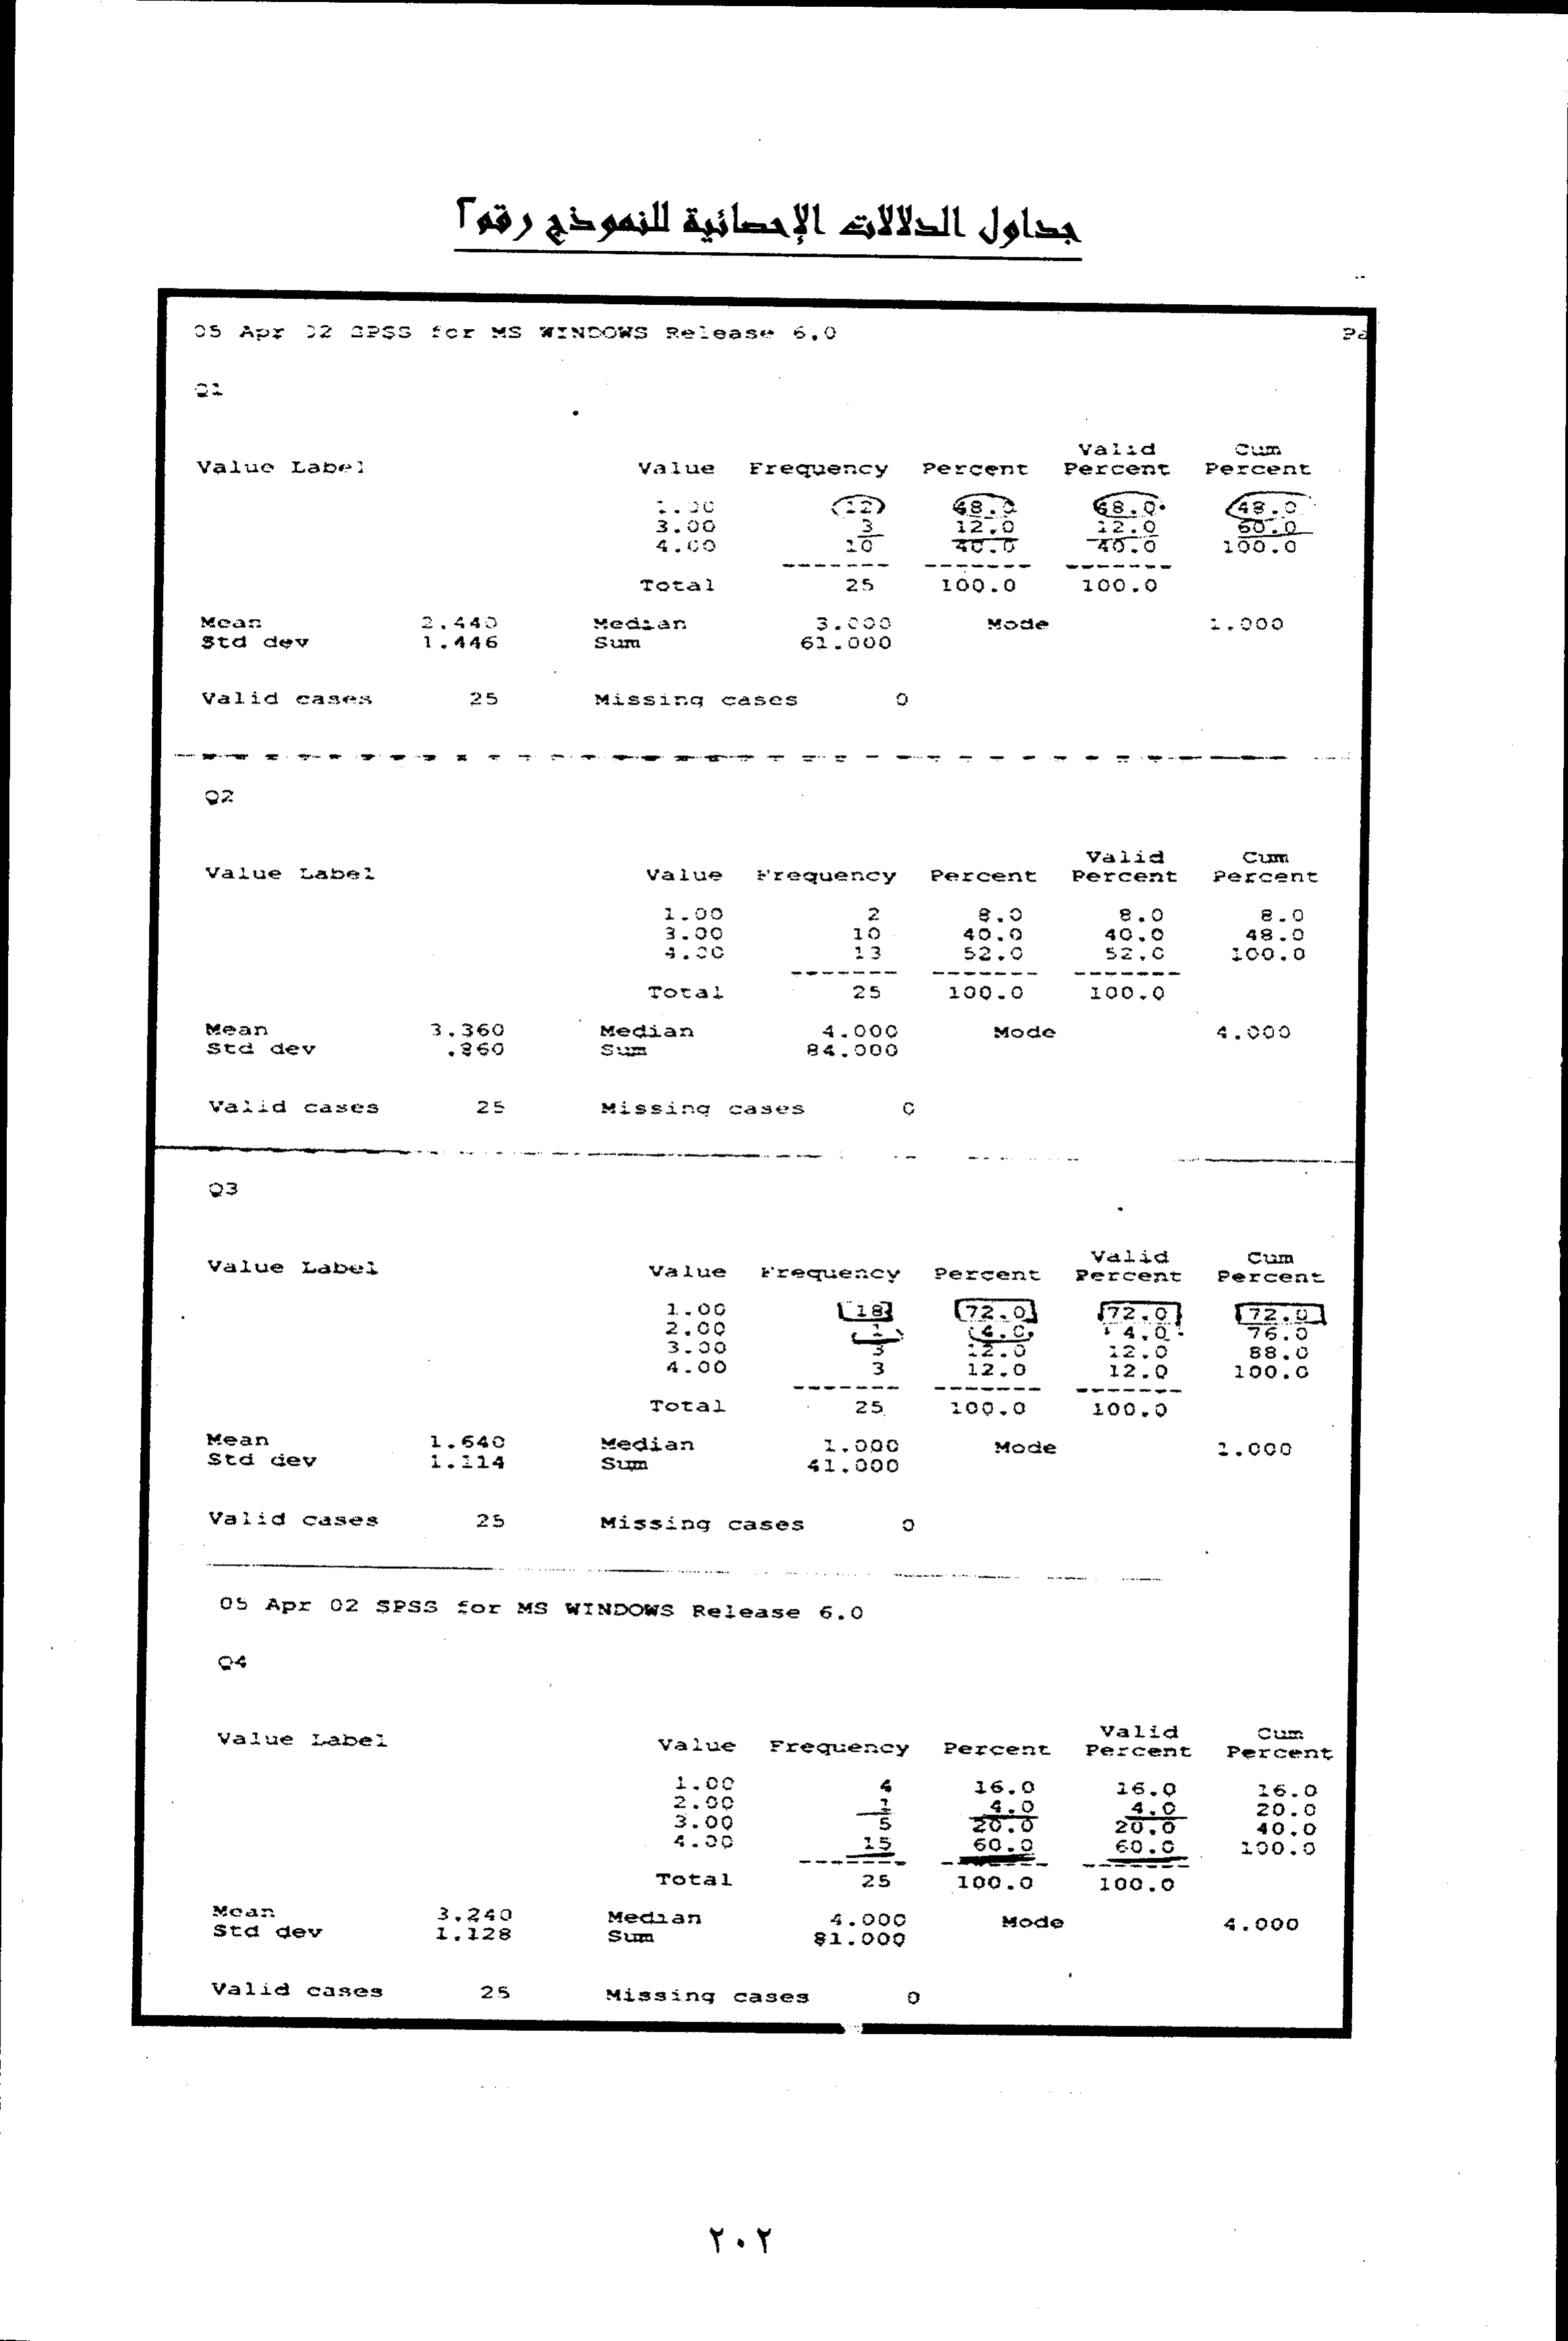 جداول الدلالات الإحصائية للنموذج رقم ٢
05 Apr 02 SPSS for MS WINDOWS Release 6.0 Pa
Q1
Valid Cum
Value Label Value Frequency Percent Percent Percent
1.00 12 48.0 48.0 48.0
3.00 3 12.0 12.0 60.0
4.00 10 40.0 40.0 100.0
------- ------- -------
Total 25 100.0 100.0
Mean 2.440 Median 3.000 Mode 1.000
Std dev 1.446 Sum 61.000
Valid cases 25 Missing cases 0
Q2
Valid Cum
Value Label Value Frequency Percent Percent Percent
1.00 2 8.0 8.0 8.0
3.00 10 40.0 40.0 48.0
4.00 13 52.0 52.0 100.0
------- ------- -------
Total 25 100.0 100.0
Mean 3.360 Median 4.000 Mode 4.000
Std dev .860 Sum 84.000
Valid cases 25 Missing cases 0
Q3
Valid Cum
Value Label Value Frequency Percent Percent Percent
1.00 18 72.0 72.0 72.0
2.00 1 4.0 4.0 76.0
3.00 3 12.0 12.0 88.0
4.00 3 12.0 12.0 100.0
------- ------- -------
Total 25 100.0 100.0
Mean 1.640 Median 1.000 Mode 1.000
Std dev 1.114 Sum 41.000
Valid cases 25 Missing cases 0
05 Apr 02 SPSS for MS WINDOWS Release 6.0
Q4
Valid Cum
Value Label Value Frequency Percent Percent Percent
1.00 4 16.0 16.0 16.0
2.00 1 4.0 4.0 20.0
3.00 5 20.0 20.0 40.0
4.00 15 60.0 60.0 100.0
------- ------- -------
Total 25 100.0 100.0
Mean 3.240 Median 4.000 Mode 4.000
Std dev 1.128 Sum 81.000
Valid cases 25 Missing cases 0
٢٠٢